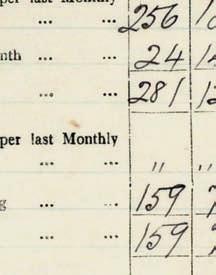 per last Monthly
... ... 256
nth ... ... 24
... 281
per last Monthly
... ... "
g ... ... 159
... ... 159